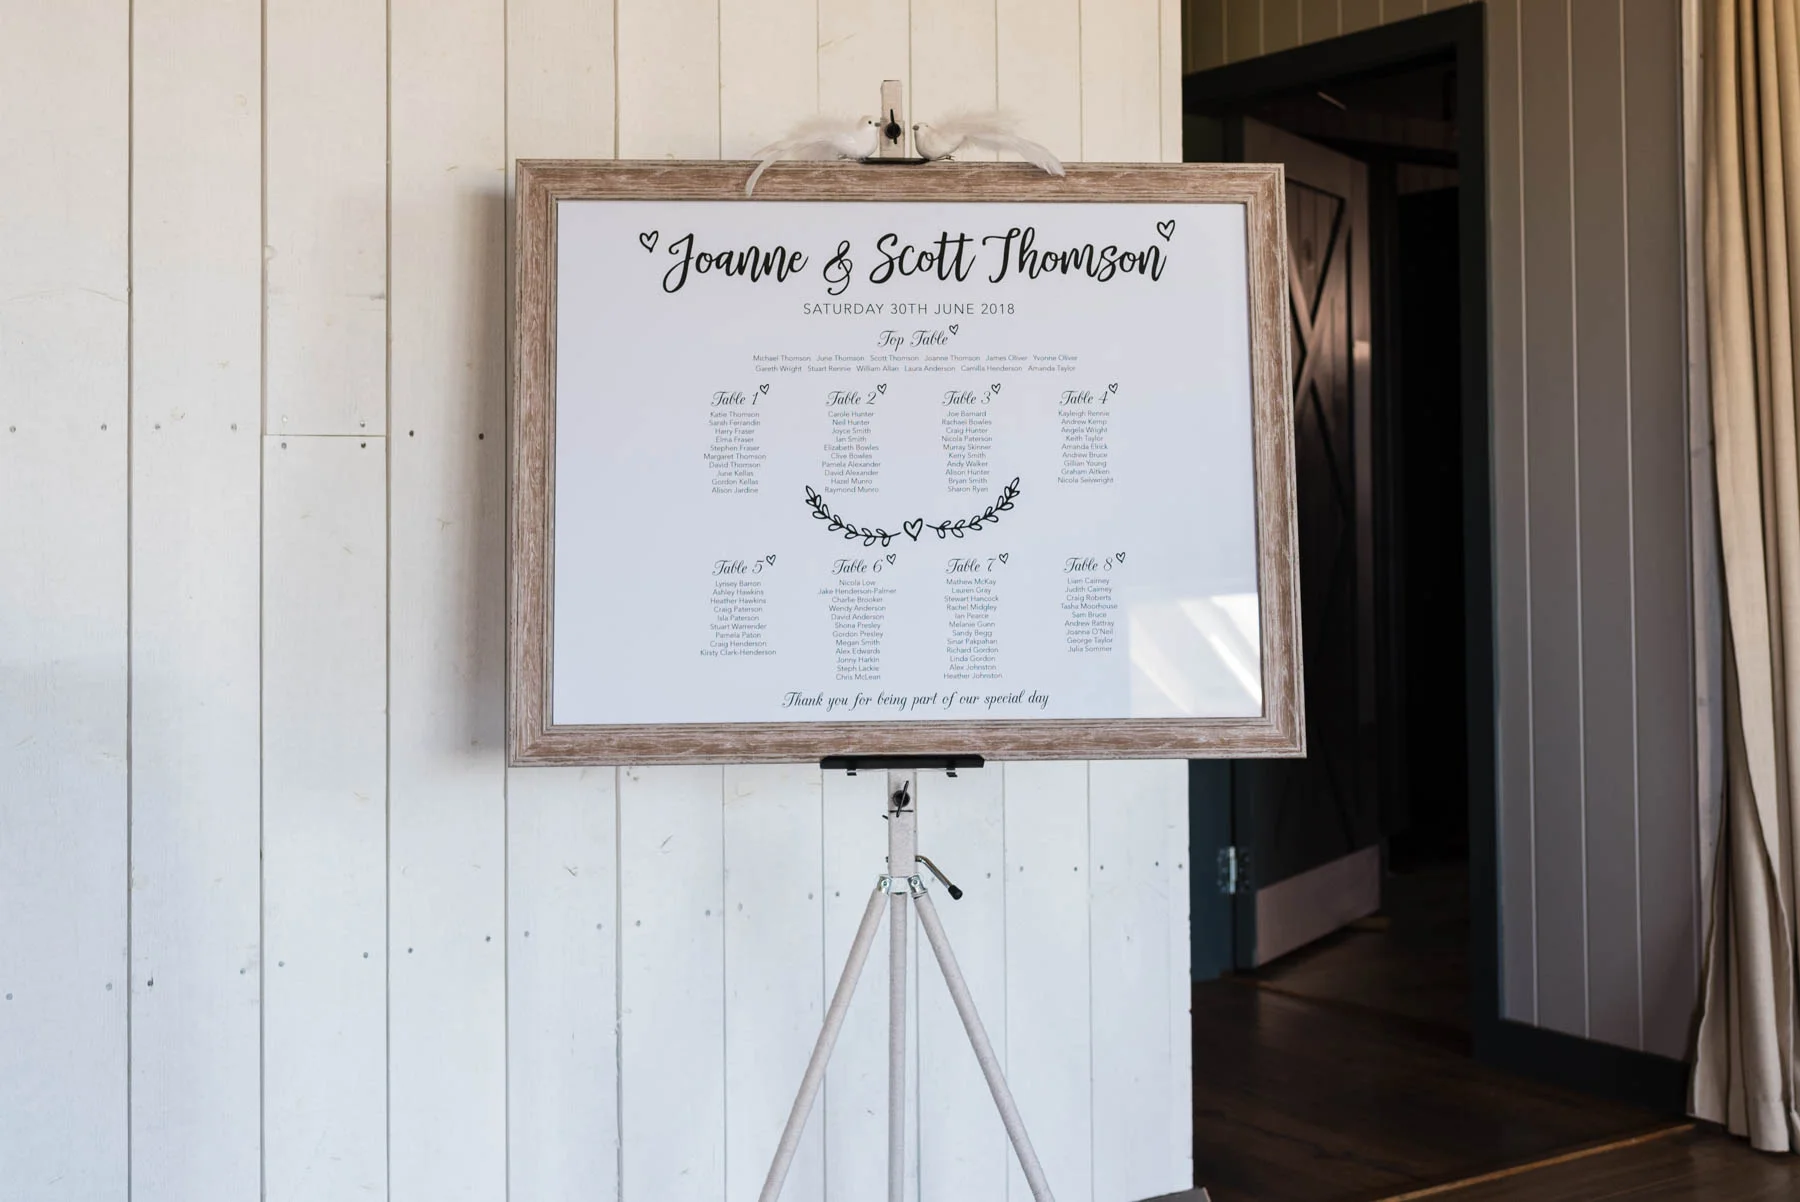 Joanne & Scott Thomson
SATURDAY 30TH JUNE 2018
Top Table
Michael Thomson June Thomson Scott Thomson Joanne Thomson James Oliver Yvonne Oliver
Gareth Wright Stuart Rennie William Allan Laura Anderson Camilla Henderson Amanda Taylor
Table 1
Katie Thomson
Sarah Ferrandin
Harry Fraser
Elma Fraser
Stephen Fraser
Margaret Thomson
David Thomson
June Kellas
Gordon Kellas
Alison Jardine
Table 2
Carole Hunter
Neil Hunter
Joyce Smith
Ian Smith
Elizabeth Bowles
Clive Bowles
Pamela Alexander
David Alexander
Hazel Munro
Raymond Munro
Table 3
Joe Barnard
Rachael Bowles
Craig Hunter
Nicola Paterson
Murray Skinner
Kerry Smith
Andy Walker
Alison Hunter
Bryan Smith
Sharon Ryan
Table 4
Kayleigh Rennie
Andrew Kemp
Angela Wright
Keith Taylor
Amanda Elrick
Andrew Bruce
Gillian Young
Graham Aitken
Nicola Selwright
Table 5
Lynsey Barron
Ashley Hawkins
Heather Hawkins
Craig Paterson
Isla Paterson
Stuart Warrender
Pamela Paton
Craig Henderson
Kirsty Clark-Henderson
Table 6
Nicola Low
Jake Henderson-Palmer
Charlie Brooker
Wendy Anderson
David Anderson
Shona Presley
Gordon Presley
Megan Smith
Alex Edwards
Jonny Harkin
Steph Lackie
Chris McLean
Table 7
Mathew McKay
Lauren Gray
Stewart Hancock
Rachel Midgley
Ian Pearce
Melanie Gunn
Sandy Begg
Sinar Pakpahan
Richard Gordon
Linda Gordon
Alex Johnston
Heather Johnston
Table 8
Liam Cairney
Judith Cairney
Craig Roberts
Tasha Moorhouse
Sam Bruce
Andrew Rattray
Joanna O'Neil
George Taylor
Julia Sommer
Thank you for being part of our special day